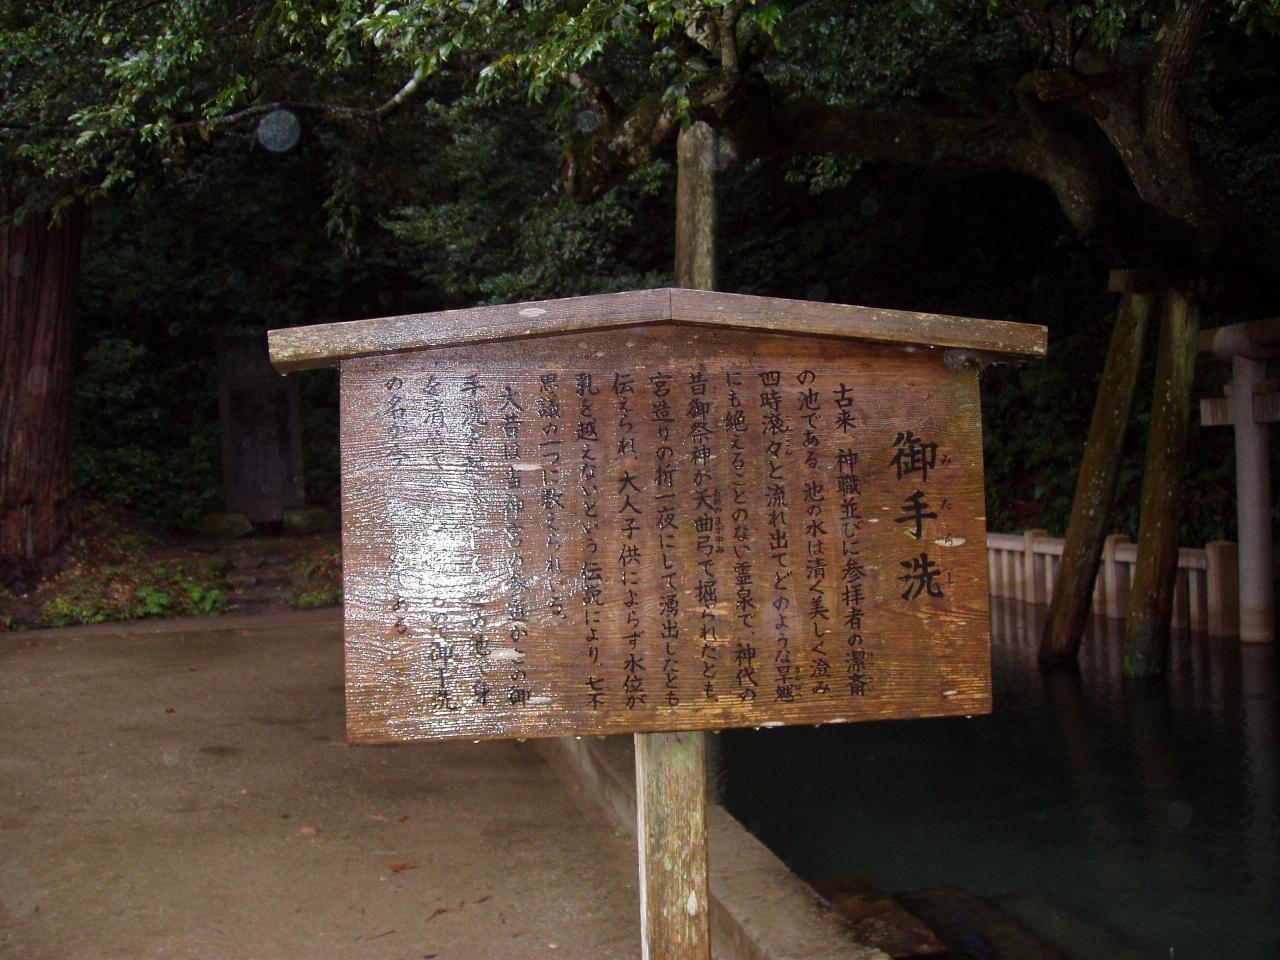 御手洗
みたらし
古来、神職並びに参拝者の潔斎
の池である。池の水は清く美しく澄み
四時滾々と流れ出てどのような旱魃
にも絶えることのない霊泉で、神代の
昔御祭神が天曲弓で掘られたとも
宮造りの折一夜にして湧出したとも
伝えられ、大人子供によらず水位が
乳を越えないという伝説により、七不
思議の一つに数えられている。
大昔は当神宮の参道がこの御
手洗を
の池で身
を清
御手洗
の名が今
ある